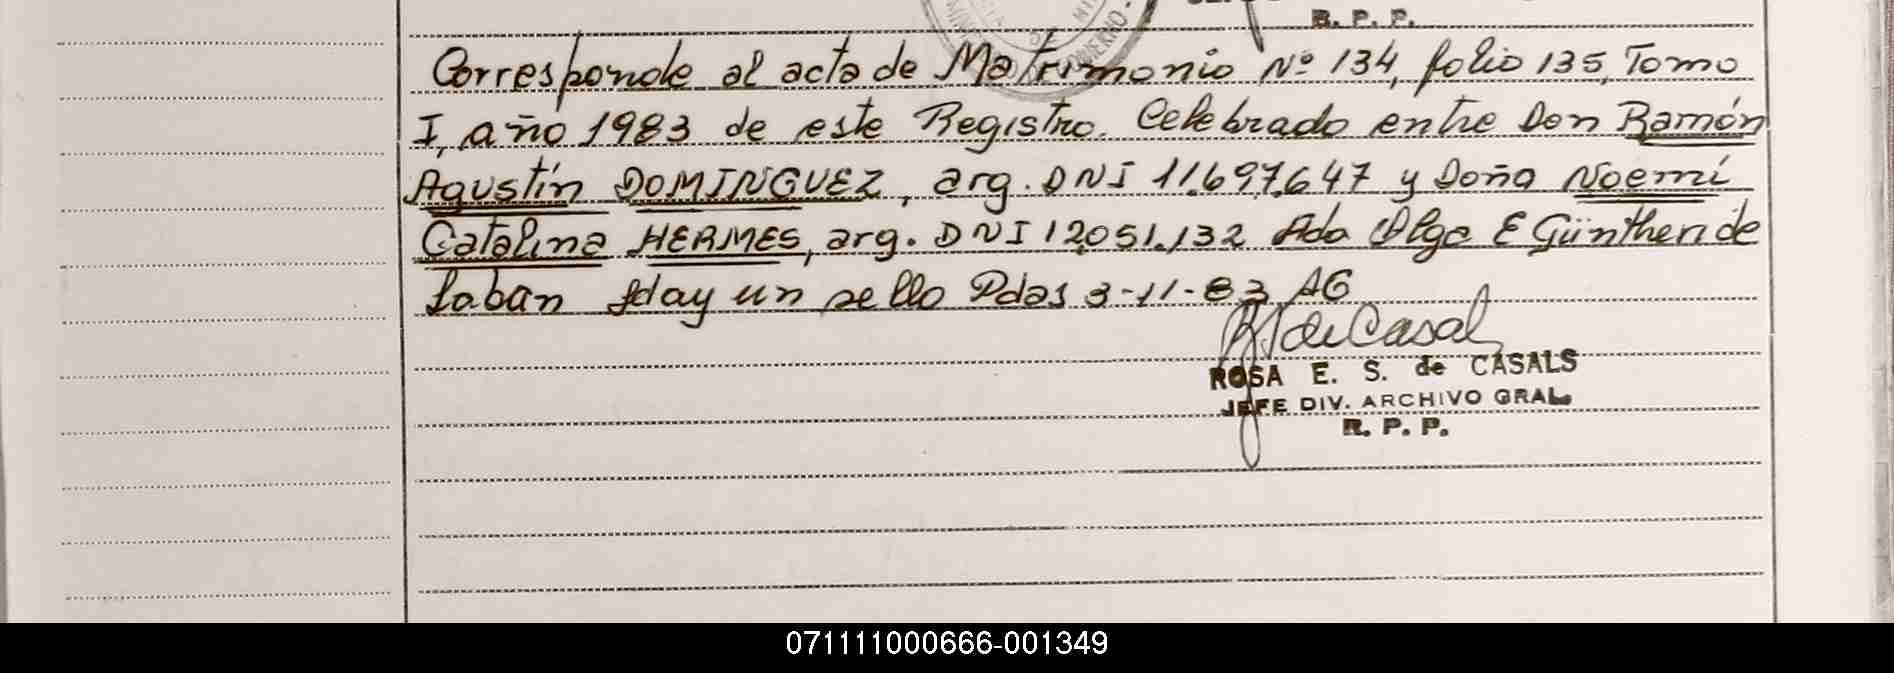 R. P. P.
Corresponde al acta de Matrimonio Nº 134, folio 135, Tomo
I, año 1983 de este Registro. Celebrado entre Don Ramón
Agustín DOMINGUEZ, arg. DNI 11.697.647 y Doña Noemí
Catalina HERMES, arg. DNI 12.051.132 Ada Olga E Günther de
Laban Hay un sello Pdas 3-11-83 AG
de Casal
ROSA E. S. de CASALS
JEFE DIV. ARCHIVO GRAL.
R. P. P.
071111000666-001349